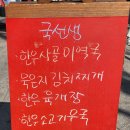 국선생
한우사골미역국
묵은지김치찌개
한우육개장
한우소고기우국